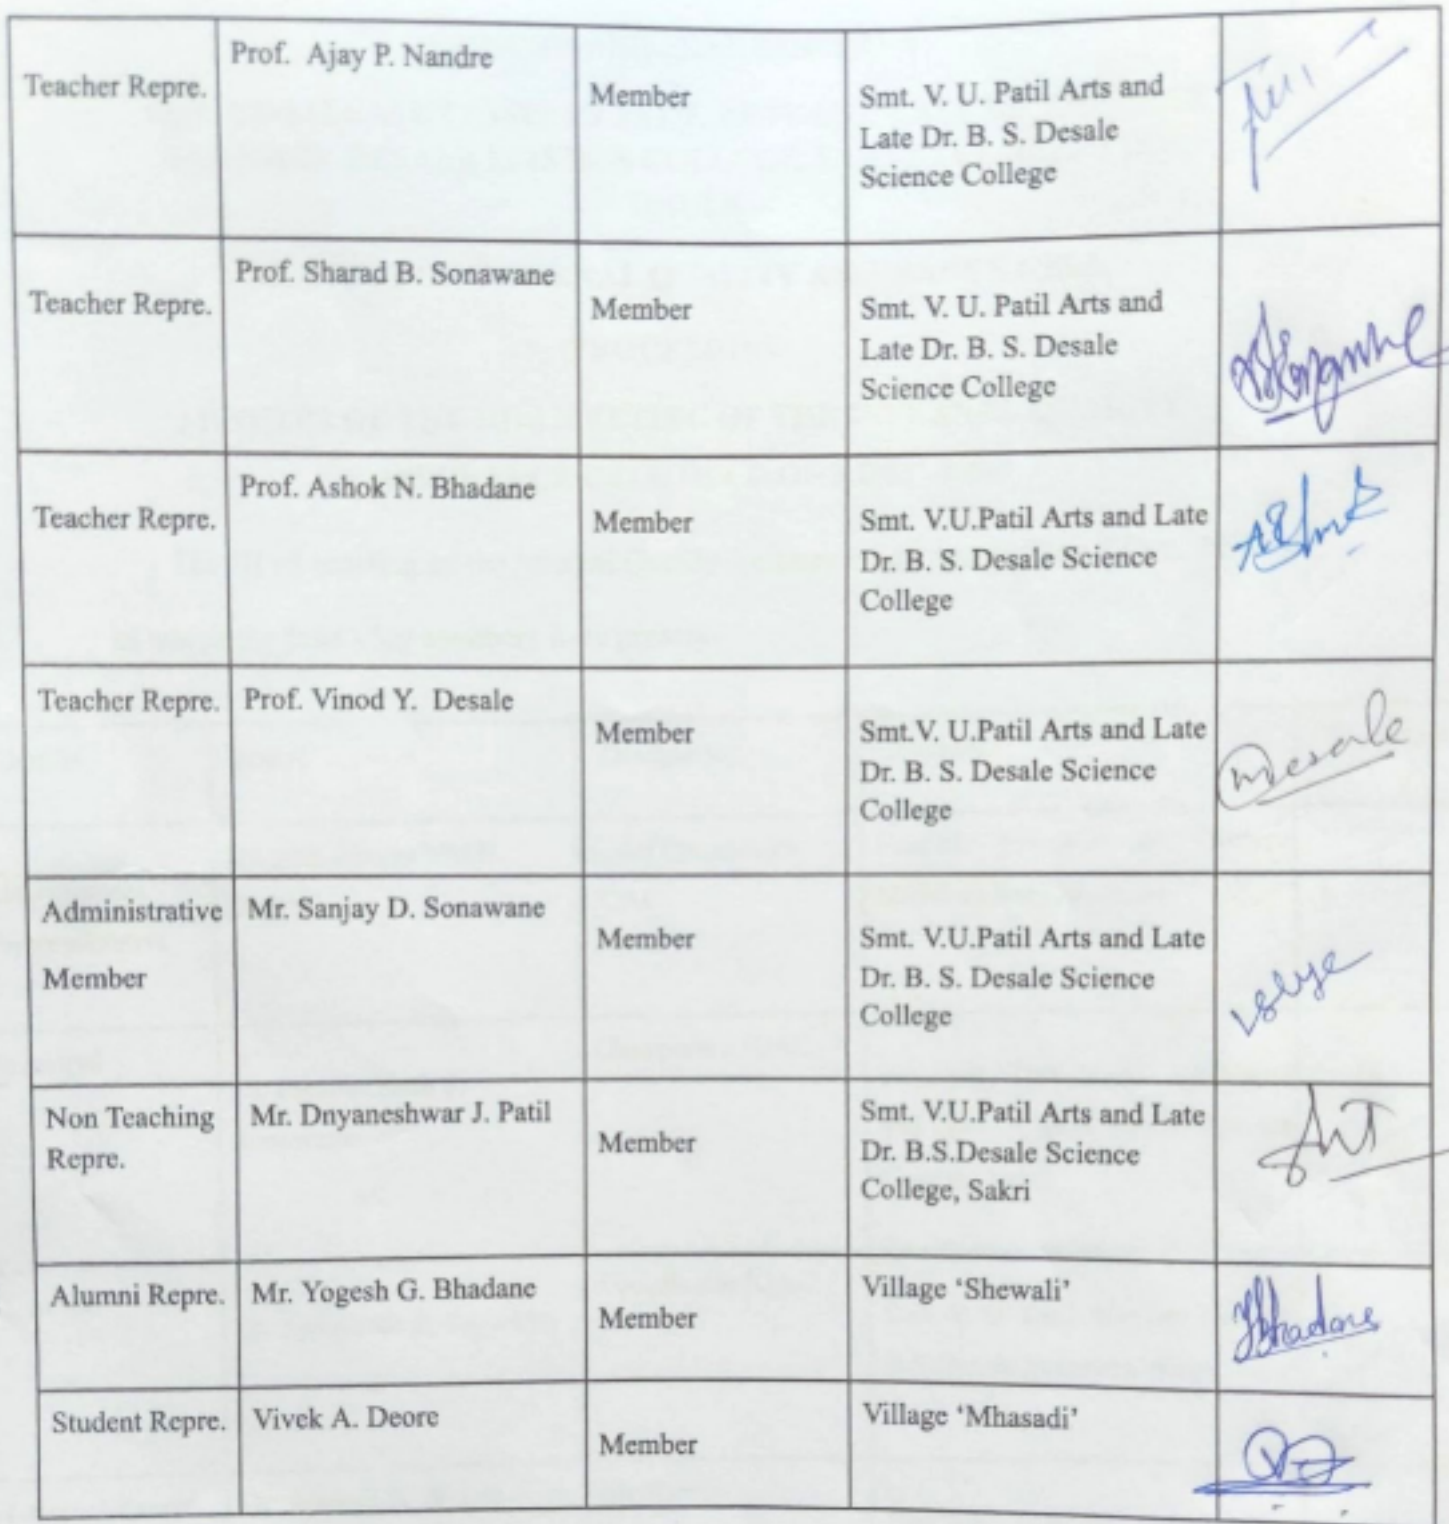 Teacher Repre.
Prof. Ajay P. Nandre
Member
Smt. V. U. Patil Arts and
Late Dr. B. S. Desale
Science College
Teacher Repre.
Prof. Sharad B. Sonawane
Member
Smt. V. U. Patil Arts and
Late Dr. B. S. Desale
Science College
Teacher Repre.
Prof. Ashok N. Bhadane
Member
Smt. V.U.Patil Arts and Late
Dr. B. S. Desale Science
College
Teacher Repre.
Prof. Vinod Y. Desale
Member
Smt.V. U.Patil Arts and Late
Dr. B. S. Desale Science
College
Desale
Administrative
Member
Mr. Sanjay D. Sonawane
Member
Smt. V.U.Patil Arts and Late
Dr. B. S. Desale Science
College
Non Teaching
Repre.
Mr. Dnyaneshwar J. Patil
Member
Smt. V.U.Patil Arts and Late
Dr. B.S.Desale Science
College, Sakri
Alumni Repre.
Mr. Yogesh G. Bhadane
Member
Village ‘Shewali’
YBhadane
Student Repre.
Vivek A. Deore
Member
Village ‘Mhasadi’